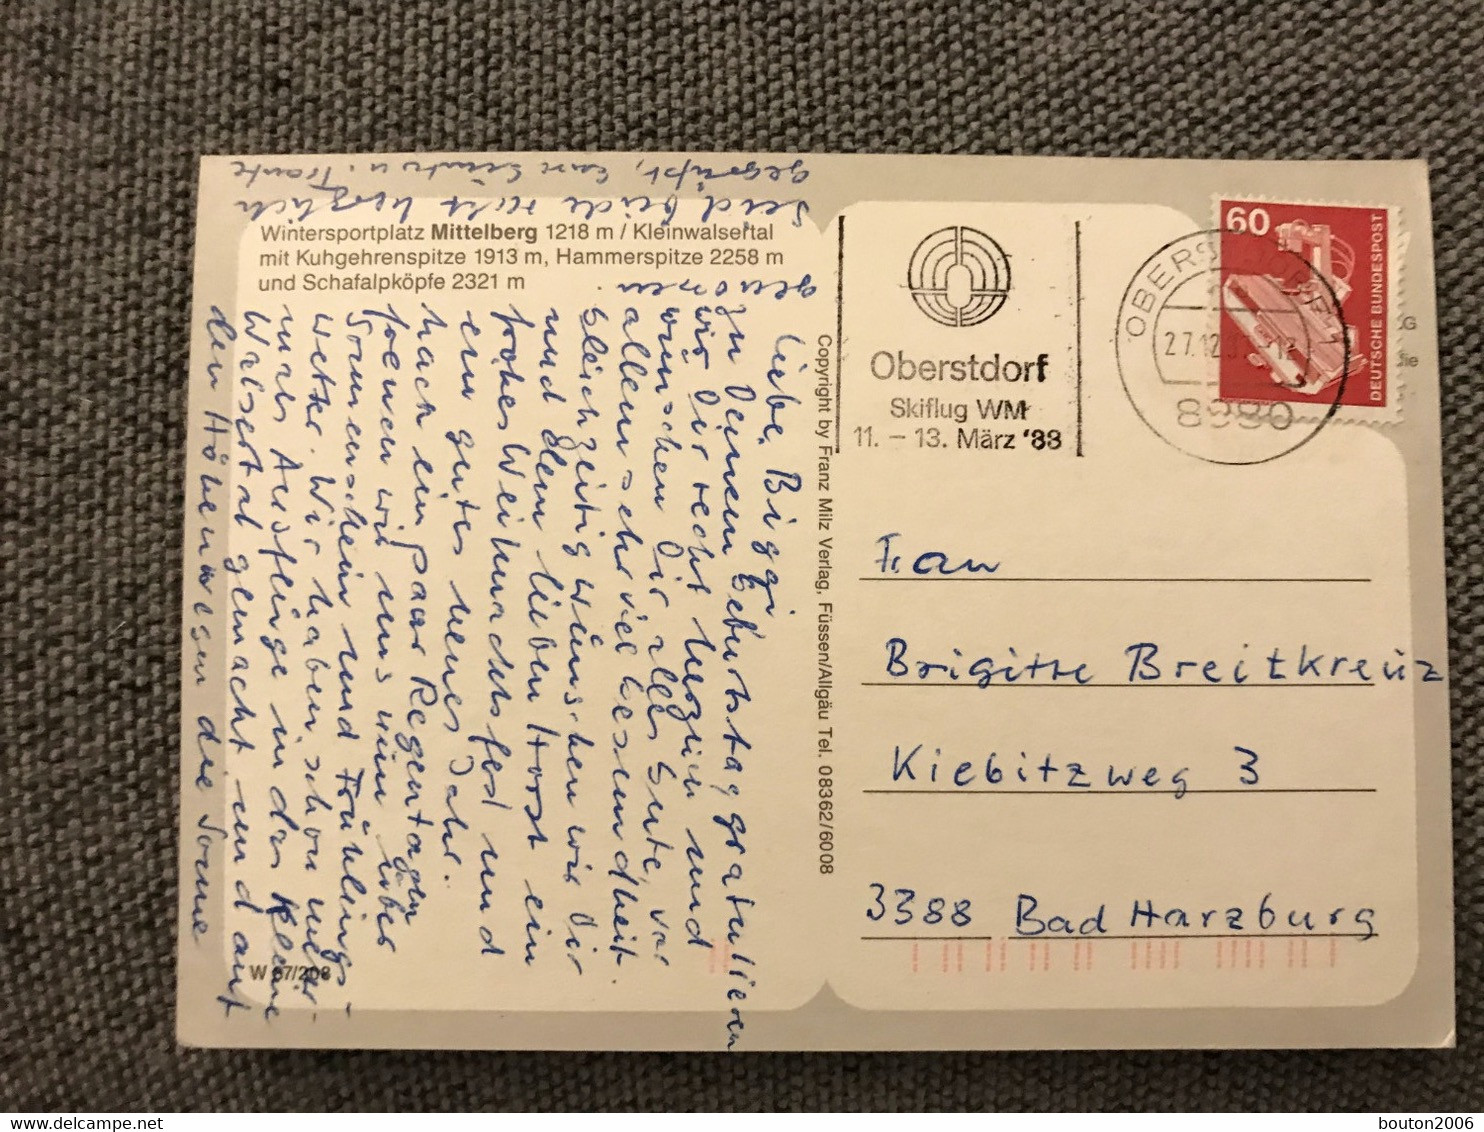 Wintersportplatz Mittelberg 1218 m / Kleinwalsertal
mit Kuhgehrenspitze 1913 m, Hammerspitze 2258 m
und Schafalpköpfe 2321 m
Liebe Biggi
zu Deinem Geburtstag gratulieren
wir Dir recht herzlich und
wünschen Dir alles Gute, vor
allem sehr viel Gesundheit.
Gleichzeitig wünschen wir Dir
und dem lieben Horst ein
frohes Weihnachtsfest und
ein gutes neues Jahr.
Nach ein paar Regentagen
freuen wir uns nun über
Sonnenschein und Frühlings-
wetter. Wir haben schon mehr-
mals Ausflüge in das Kleine
Walsertal gemacht und auf
den Höhenwegen die Sonne
genossen.
Seid beide recht herzlich
gegrüßt, Eure u.
W 87/208
Copyright by Franz Milz Verlag, Füssen/Allgäu Tel. 08362/6008
Oberstdorf
Skiflug WM
11. – 13. März '88
OBERSTDORF 1
27.12.
8980
60
DEUTSCHE BUNDESPOST
G
die
Frau
Brigitte Breitkreuz
Kiebitzweg 3
3388 Bad Harzburg
bouton2006